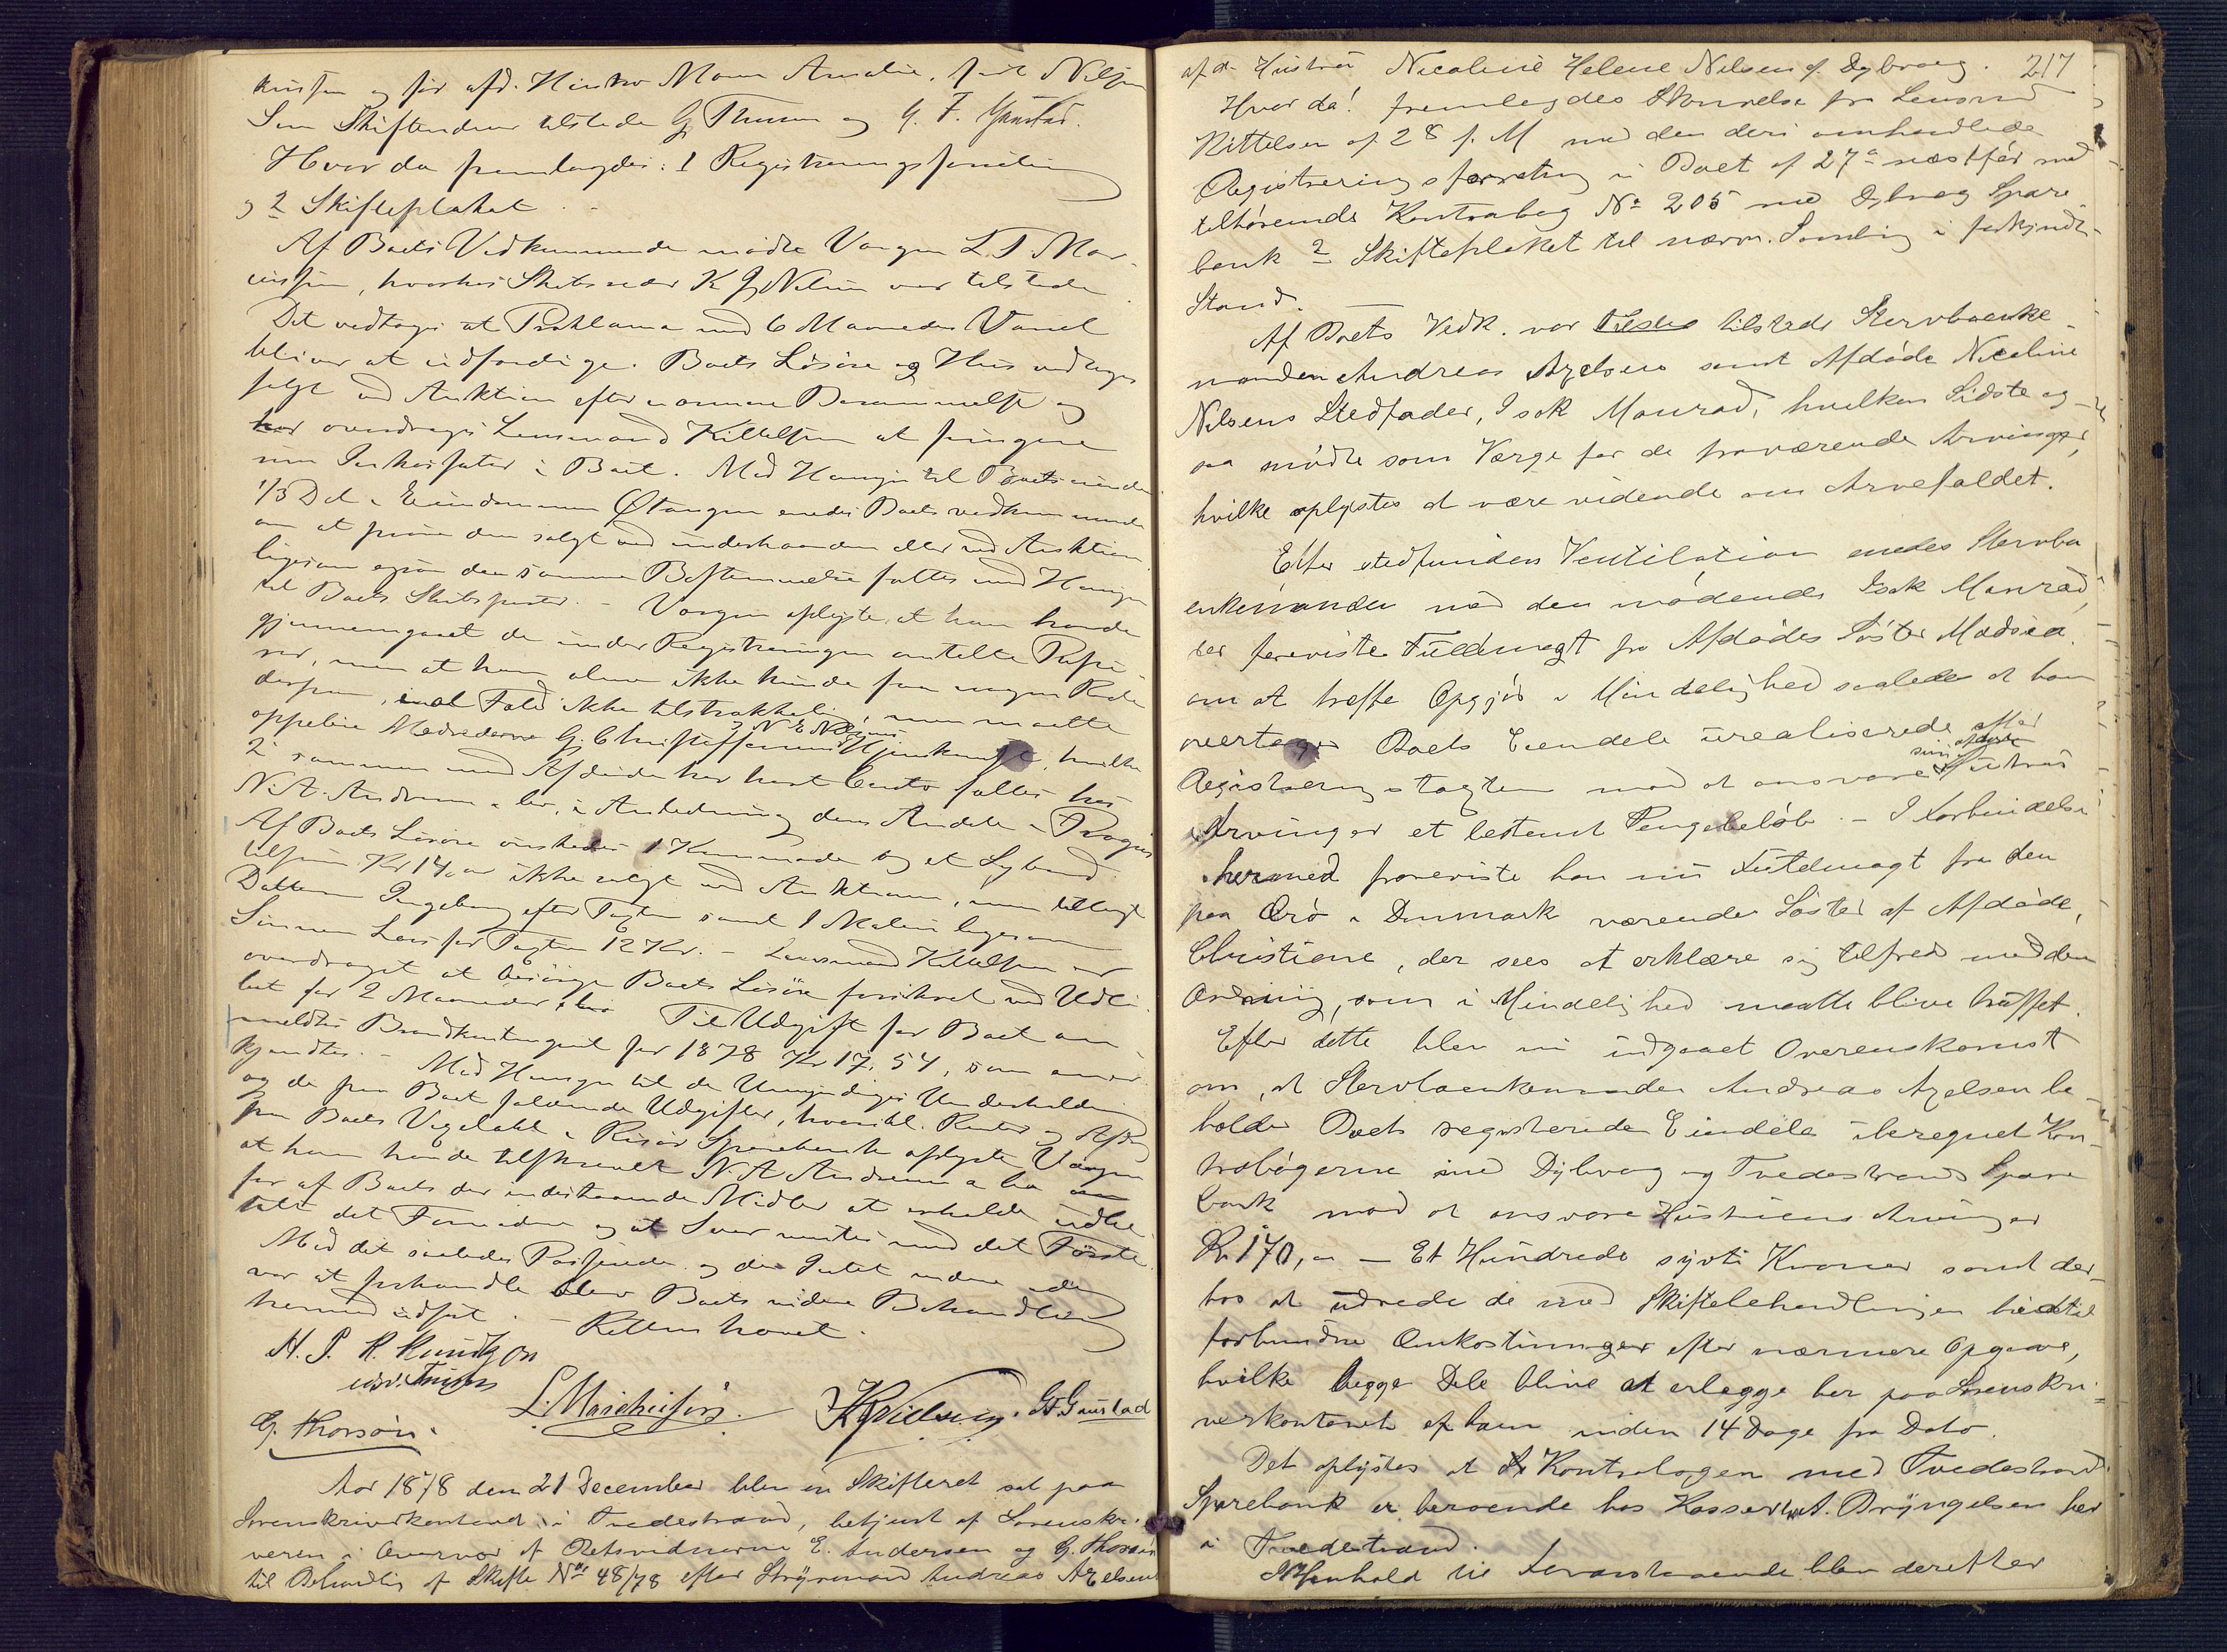 afd. Hustro Amalie, født Nilsen
Som Skiftevidner tilstede G. Thorsen og G. F. Gaustad.
Hvor da fremlagdes: 1 Registreringsforretning
og 2 Skifteplakat.
Af Boets Vedkommende mødte Vergen L. T. Mar-
cussen, hvorhos Skibsreder K G Nielsen var tilstede
Det vedtoges at Proklama med 6 Maaneders Varsel
bliver at udfærdige. Boets Løsøre og Hus vedtoges
solgt ved Auktion efter nærmere Berammelse og
har overdrages Lensmand Kittelsen at fungere
som Inkassator i Boet. Med Hensyn til Boets
1/3 Del i Eiendommen Østangen enedes Boets vedkommende
om at prøve den solgt ved underhaanden eller ved Auktion
ligesom ogsaa den samme Bestemmelse fattes med Hensyn
til Boets Skibsparter. - Vergen oplyste, at han havde
gjennemgaaet de under Registreringen omtalte Papi-
rer, men at han alene ikke kunde faa nogen Rede
derpaa, i al Fald ikke tilstrækkelig, men maatte
oppebie Medrederne G. Christoffersens og N E Nielsens Hjemkomst, hvilke
2 sammen med Afdøde har havt Conto fælles hos
N. A. Andersen i Anledning deres Andele i
Af Boets Løsøre ønskedes 1 Kommode og et
tilsammen Kr 14,00 ikke solgt ved Auktionen, men tillagt
Datteren Ingeborg efter Taxten samt 1 Maleri ligesom
Sønnen Lars for Taxten 12 Kr. - Lensmand Kittelsen er
overdraget at besørge Boets Løsøre forsikret ved
for 2 Maaneder. Til Udgift for Boet an-
meldtes Brandkontingent for 1878 Kr 17,54, som aner-
kjendtes. - Med Hensyn til de Umyndiges Underholdning
og de paa Boet faldende Udgifter, hvoriblandt Renter og
paa Boets Vexelobl. i Risør Sparebank oplyste Vergen
at han havde tilskrevet N. A. Andersen om
for af Boets der indestaaende Midler at erholde udbe-
talt det Fornødne og at Svar ventes med det Første.
Med det saaledes Passerede og da Intet videre
var at forhandle blev Boets videre Behandling
hermed udsat. - Retten hævet.
H. J. R. Knudtzon
G. Thorsen. L. Marcussen. K G Nielsen. G F Gaustad
Aar 1878 den 21 December blev en Skifteret sat paa
Sorenskriverkontoret i Tvedestrand, betjent af Sorenskri-
veren i Overvær af Retsvidnerne E. Andersen og G. Thorsen
til Behandling af Skifte No 48/78 efter Styrmand Andreas Axelsens
217
afd. Hustru Nicoline Helene Nilsen af Dybvaag.
Hvor da! fremlagdes Skrivelse fra Lensmd
Kittelsen af 28 f. M med den deri omhandlede
Registreringsforretning i Boet af 27de næstfør med
tilhørende Kontrabog No 205 med Dybvag Spare-
bank 2 Skifteplakat til nærv. Samling i forkyndt
Stand.
Af Boets Vedk. var tilstede Stervboenke-
manden Andreas Axelsen samt Afdøde Nicoline
Nilsens Stedfader, Isak Monrad, hvilken Sidste og-
saa mødte som Verge for de fraværende Arvinger,
hvilke oplystes at være vidende om Arvefaldet.
Efter stedfunden Ventilation enedes Stervbo
enkemanden med den mødende Isak Monrad,
der foreviste Fuldmagt fra Afdødes Søster
om at træffe Opgjør i Mindelighed saaledes at han
overtager Boets Eiendele urealiserede efter
Registreringstaxten mod at ansvare sin afdøde Hustrus
Arvinger et bestemt Pengebeløb. - I Forbindelse
hermed foreviste han nu Fuldmagt fra den
paa Ærø i Danmark værende Søster af Afdøde,
Christiane, der sees at erklære sig tilfreds med den
Ordning, som i Mindelighed maatte blive truffet.
Efter dette blev nu indgaaet Overenskomst
om, at Stervboenkemanden Andreas Axelsen be-
holder Boets registrerede Eiendele iberegnet Kon-
trabøgerne med Dybvag og Tvedestrands Spare
bank mod at ansvare Hustruens Arvinger
Kr 170,00 - Et Hundrede sytti Kroner samt der-
hos at udrede de med Skiftebehandlingen hidtil
forbundne Omkostninger efter nærmere Opgave,
hvilke begge Dele blive at erlægge her paa Sorenskri-
verkontoret af ham inden 14 Dage fra Dato.
Det oplystes at Kontrabogen med Tvedestrands
Sparebank er beroende hos Kasserer A. Bryngelsen her
i Tvedestrand.
I Henhold til Foranstaaende blev derefter